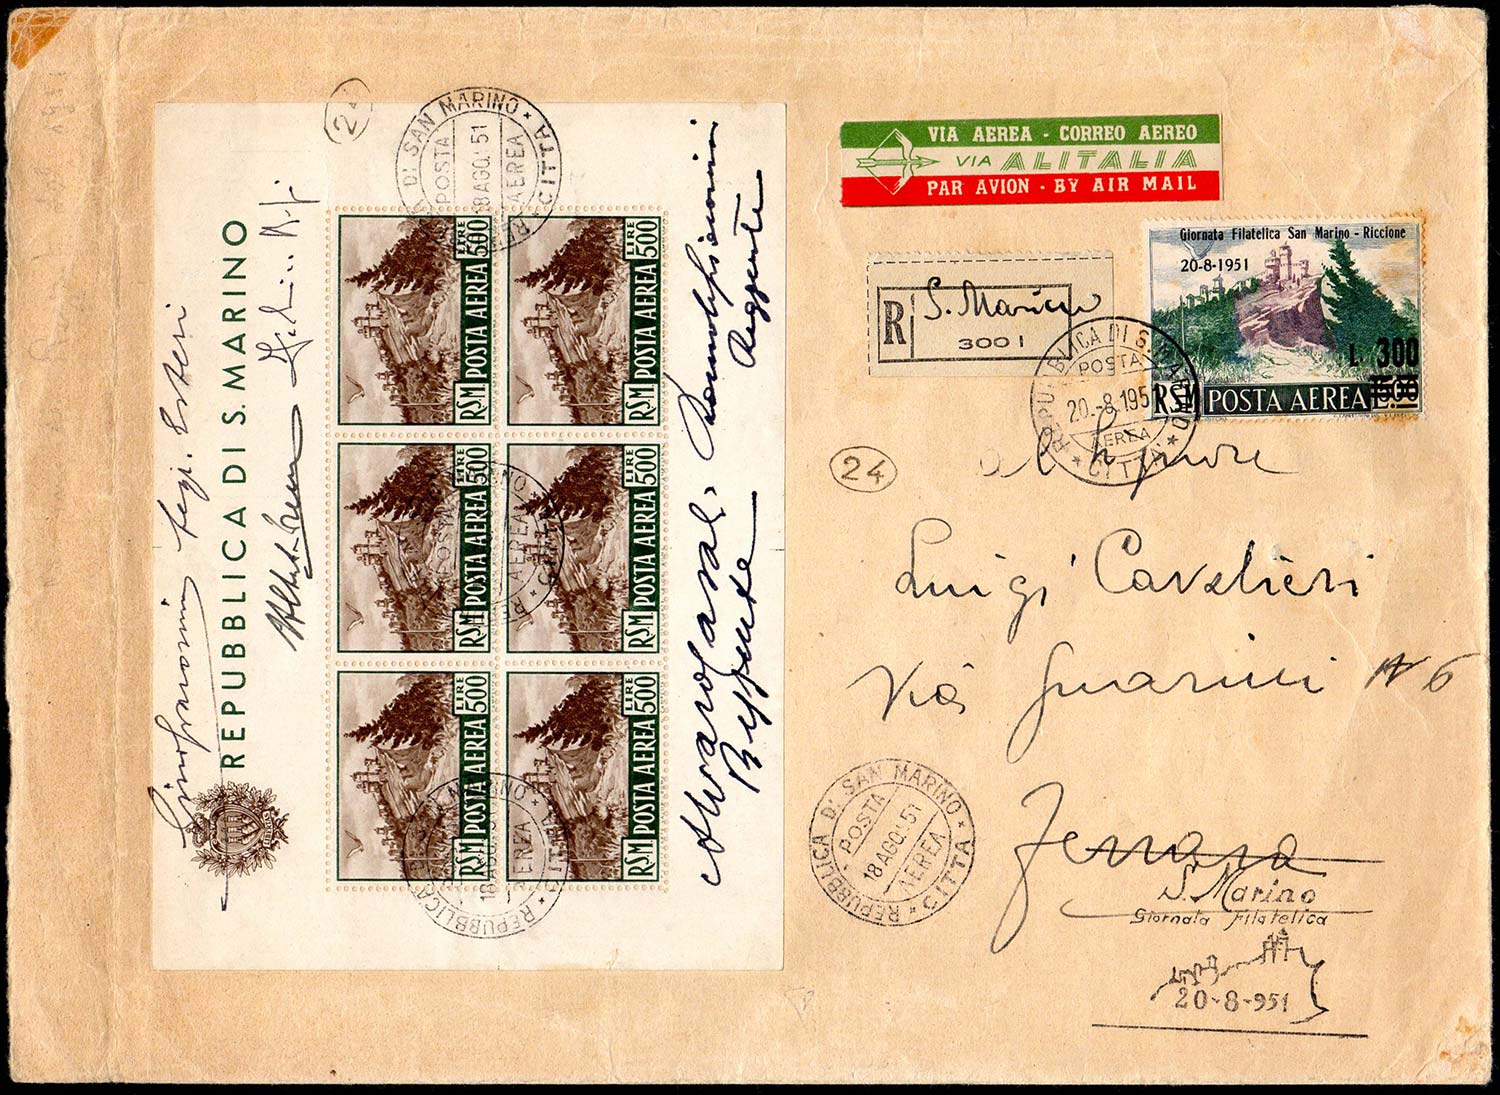 REPUBBLICA DI S. MARINO
24
REPUBBLICA DI SAN MARINO * CITTA *
POSTA AEREA
18 AGO. 51
LIRE 500
RSM POSTA AEREA
LIRE 500
RSM POSTA AEREA
LIRE 500
RSM POSTA AEREA
LIRE 500
RSM POSTA AEREA
LIRE 500
RSM POSTA AEREA
LIRE 500
RSM POSTA AEREA
Reggente
VIA AEREA - CORREO AEREO
VIA ALITALIA
PAR AVION - BY AIR MAIL
R
S. Marino
3001
Giornata Filatelica San Marino - Riccione
20-8-1951
L. 300
RSM POSTA AEREA
REPUBBLICA DI S. MARINO * CITTA *
POSTA
20.-8.1951
AEREA
24
Luigi Cavalieri
Via Guarini N 6
Ferrara
REPUBBLICA DI SAN MARINO * CITTA *
POSTA
18 AGO. 51
AEREA
S. Marino
Giornata Filatelica
20-8-951